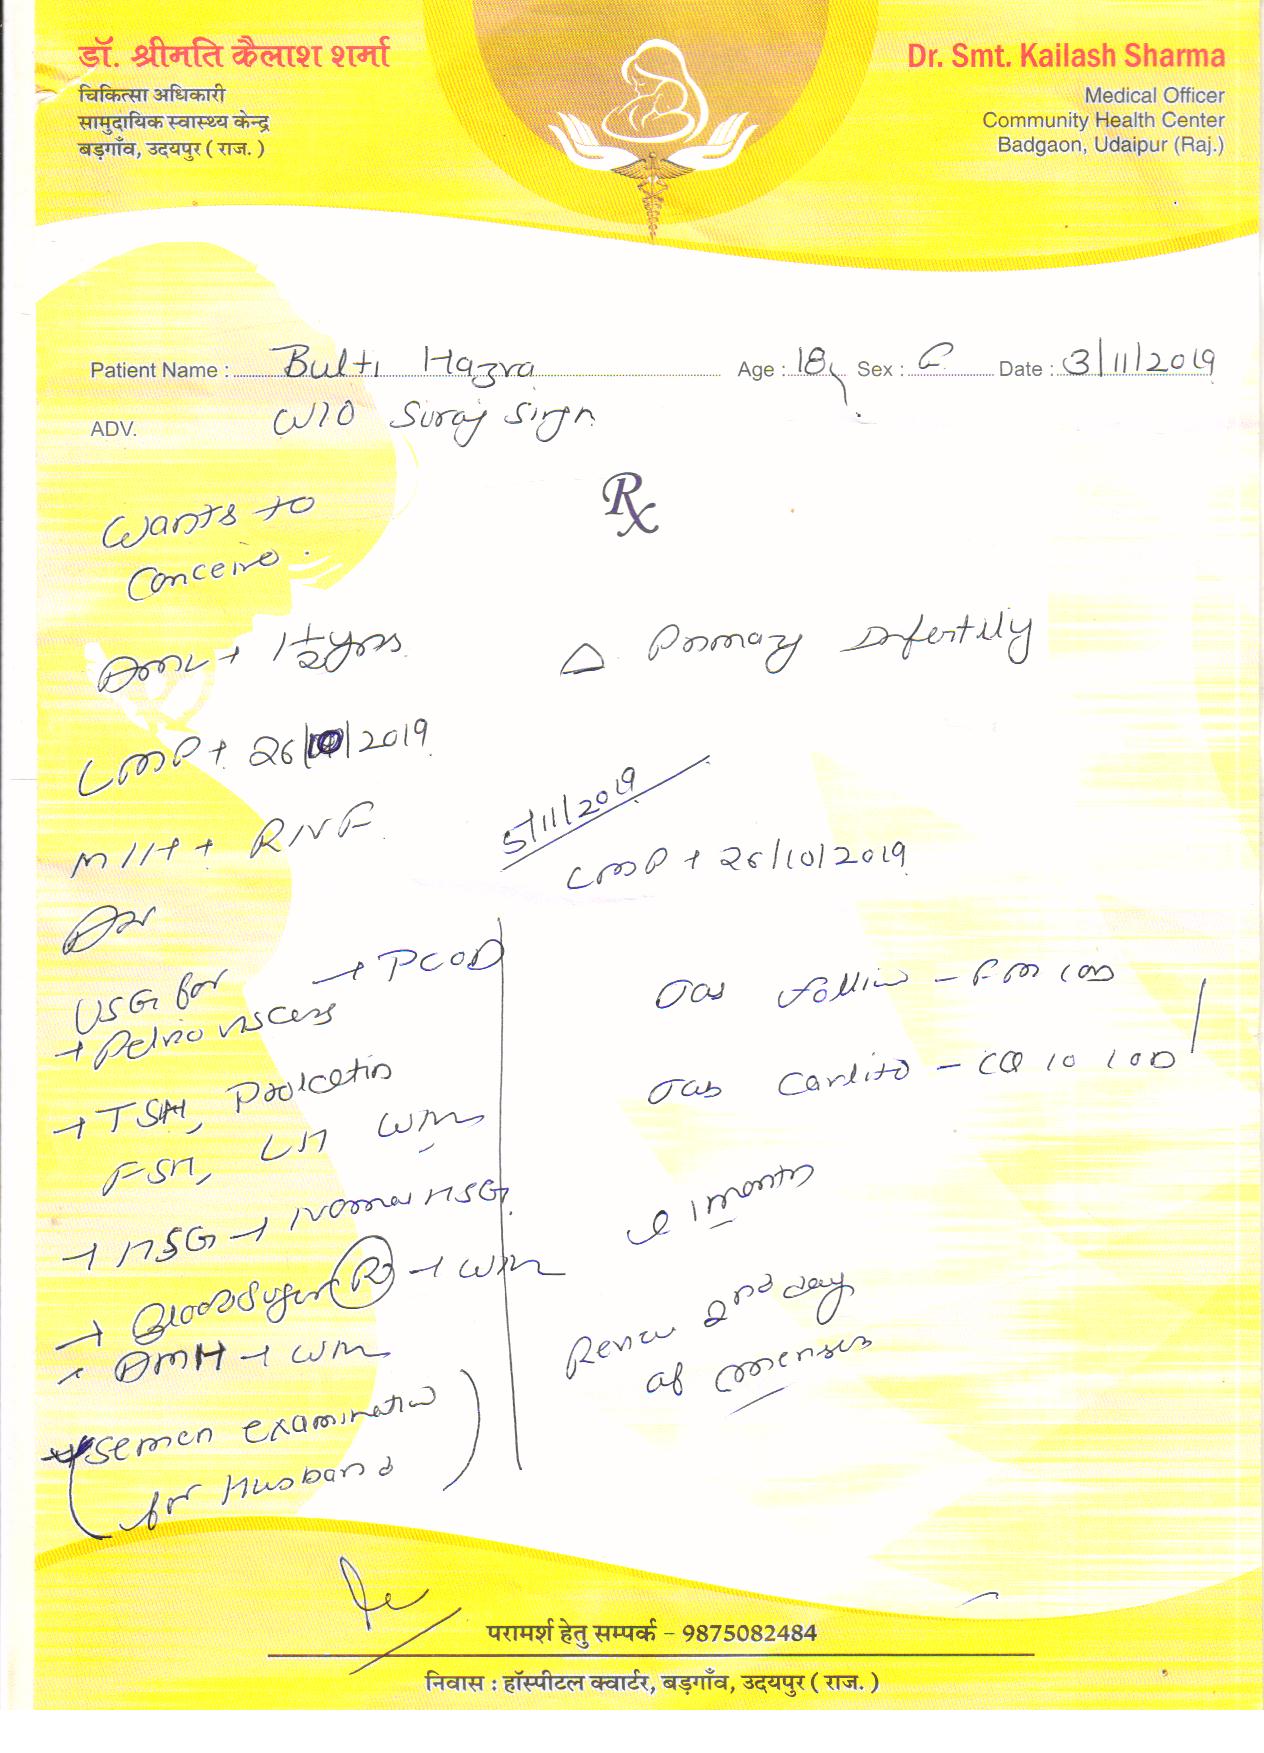 डॉ. श्रीमति कैलाश शर्मा
चिकित्सा अधिकारी
सामुदायिक स्वास्थ्य केन्द्र
बड़गाँव, उदयपुर ( राज. )
Dr. Smt. Kailash Sharma
Medical Officer
Community Health Center
Badgaon, Udaipur (Raj.)
Patient Name : Bulti Hazra Age : 18y Sex : F Date : 3/11/2019
ADV. W/O Suraj Singh
Rx
Wants to
Conceive.
1½yrs
△ Primary Infertility
LMP + 26/10/2019
M/H + RNF
5/11/2019
LMP + 26/10/2019
Adv
USG for → PCOD
→ Pelvic viscess
→ TSH, Prolcatin
FSH, LH WNL
→ HSG → Normal HSG.
→ Blood Sugar (R) → WNL
→ AMH → WNL
→ Semen examination
for Husband
Tab Follii - FM 1OD
Tab - CQ 10 1OD
1 month
Review 2nd day
of menses
परामर्श हेतु सम्पर्क – 9875082484
निवास : हॉस्पीटल क्वार्टर, बड़गाँव, उदयपुर ( राज. )